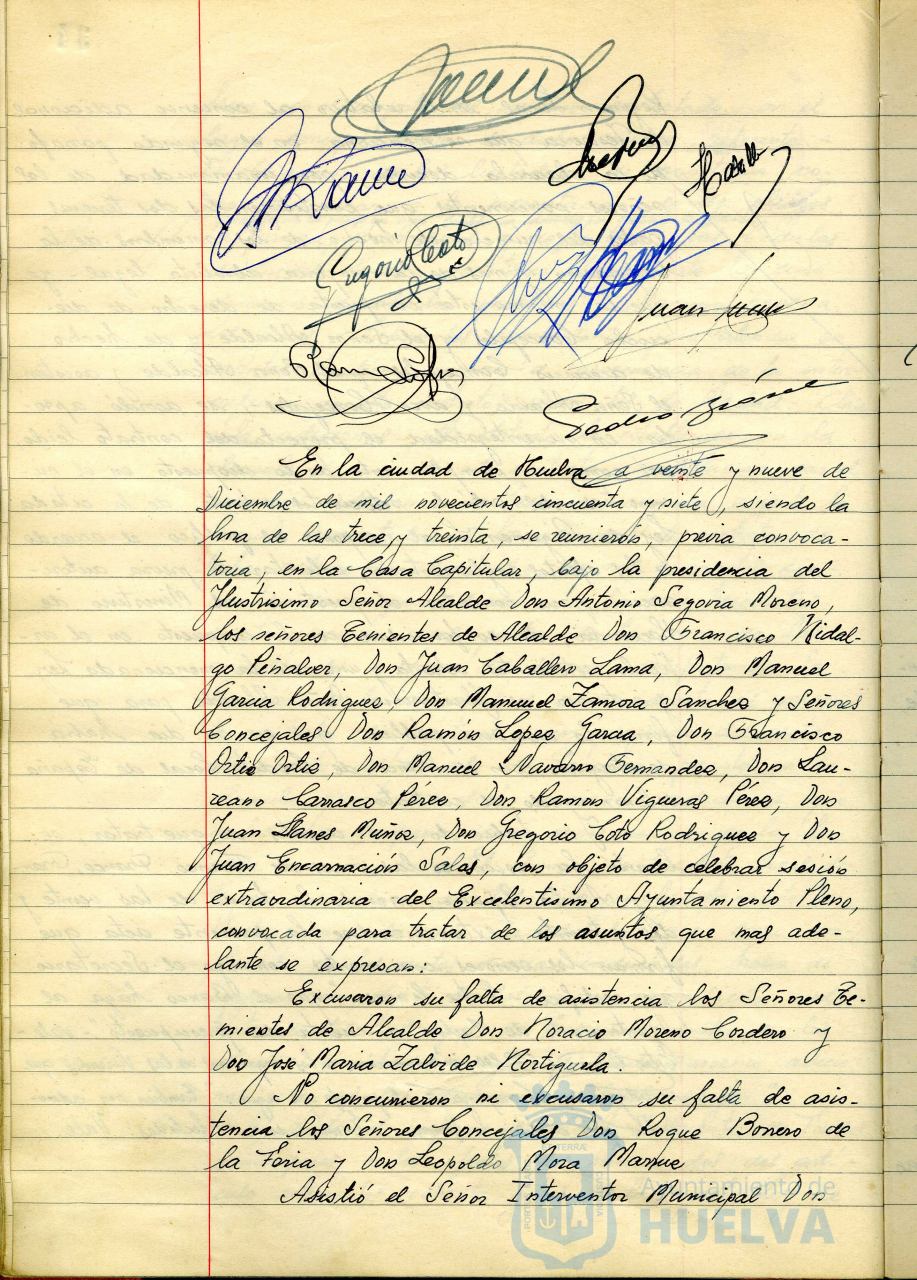 Gregorio Coto
Juan
Pedro
En la ciudad de Huelva a veinte y nueve de
Diciembre de mil novecientos cincuenta y siete, siendo la
hora de las trece y treinta, se reunieron, previa convoca-
toria, en la Casa Capitular, bajo la presidencia del
Ilustrisimo Señor Alcalde Don Antonio Segovia Moreno,
los señores Tenientes de Alcalde Don Francisco Hidal-
go Peñalver, Don Juan Caballero Lama, Don Manuel
Garcia Rodriguez, Don Manuuel Zamora Sanchez y Señores
Concejales Don Ramón Lopez Garcia, Don Francisco
Ortiz Ortiz, Don Manuel Navarro Fernandez, Don Lau-
reano Carrasco Pérez, Don Ramon Vigueras Pérez, Don
Juan Llanes Muñoz, Don Gregorio Coto Rodriguez y Don
Juan Encarnación Salas, con objeto de celebrar sesión
extraordinaria del Excelentisimo Ayuntamiento Pleno,
convocada para tratar de los asuntos que mas ade-
lante se expresan:
Excusaron su falta de asistencia los Señores Te-
nientes de Alcalde Don Horacio Moreno Cordero y
Don José Maria Zalvide Hortiguela.
No concurrieron ni excusaron su falta de asis-
tencia los Señores Concejales Don Roque Borrero de
la Feria y Don Leopoldo Mora
Asistió el Señor Interventor Municipal Don
Ayuntamiento de
HUELVA